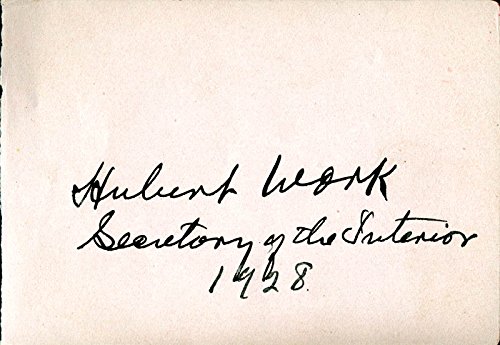 Hubert Work
Secretary of the Interior
1928